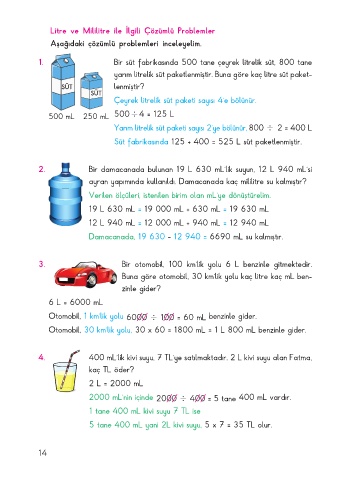 Litre ve Mililitre ile İlgili Çözümlü Problemler
Aşağıdaki çözümlü problemleri inceleyelim.
1. Bir süt fabrikasında 500 tane çeyrek litrelik süt, 800 tane
yarım litrelik süt paketlenmiştir. Buna göre kaç litre süt paket-
lenmiştir?
SÜT
SÜT
Çeyrek litrelik süt paketi sayısı 4'e bölünür.
500 mL 250 mL 500 ÷ 4 = 125 L
Yarım litrelik süt paketi sayısı 2'ye bölünür. 800 ÷ 2 = 400 L
Süt fabrikasında 125 + 400 = 525 L süt paketlenmiştir.
2. Bir damacanada bulunan 19 L 630 mL'lik suyun, 12 L 940 mL'si
ayran yapımında kullanıldı. Damacanada kaç mililitre su kalmıştır?
Verilen ölçüleri, istenilen birim olan mL'ye dönüştürelim.
19 L 630 mL = 19 000 mL + 630 mL = 19 630 mL
12 L 940 mL = 12 000 mL + 940 mL = 12 940 mL
Damacanada, 19 630 - 12 940 = 6690 mL su kalmıştır.
3. Bir otomobil, 100 km'lik yolu 6 L benzinle gitmektedir.
Buna göre otomobil, 30 km'lik yolu kaç litre kaç mL ben-
zinle gider?
6 L = 6000 mL
Otomobil, 1 km'lik yolu 6000 ÷ 100 = 60 mL benzinle gider.
Otomobil, 30 km'lik yolu, 30 x 60 = 1800 mL = 1 L 800 mL benzinle gider.
4. 400 mL'lik kivi suyu, 7 TL'ye satılmaktadır. 2 L kivi suyu alan Fatma,
kaç TL öder?
2 L = 2000 mL
2000 mL'nin içinde 2000 ÷ 400 = 5 tane 400 mL vardır.
1 tane 400 mL kivi suyu 7 TL ise
5 tane 400 mL yani 2L kivi suyu, 5 x 7 = 35 TL olur.
14